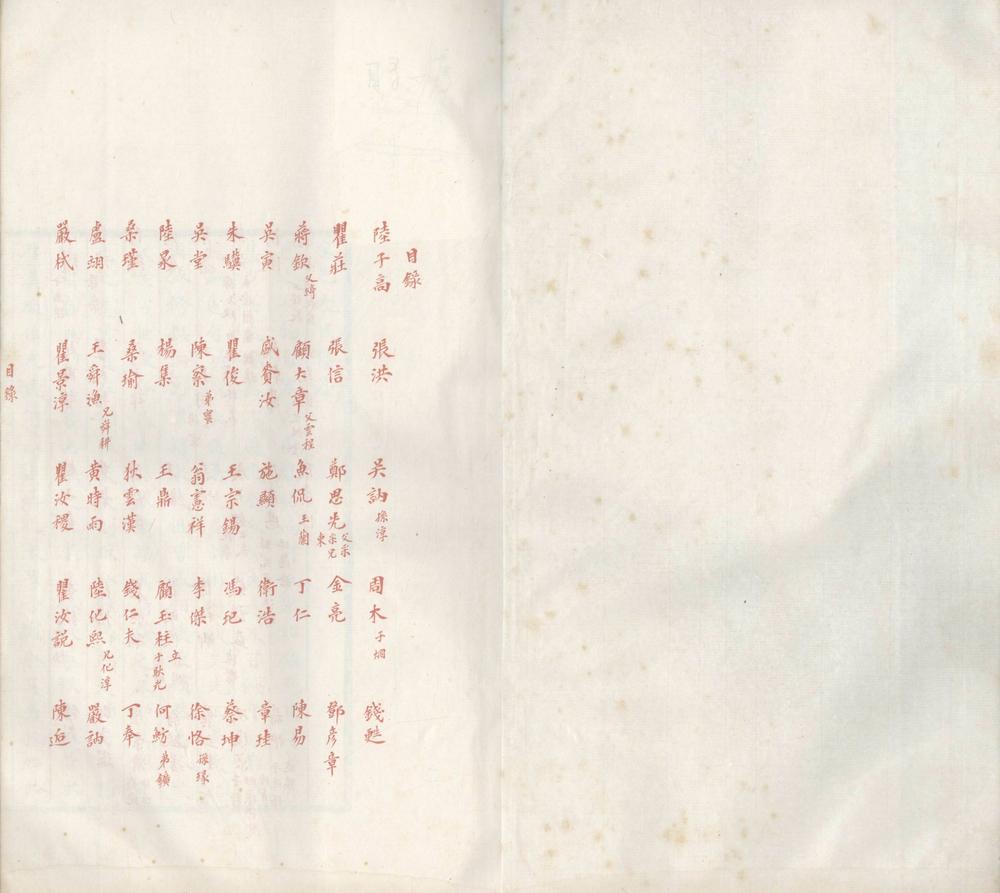 目錄
陸子高 張洪 吳訥 孫淳 周木 子烱 錢甦
瞿莊 張信 鄭思先 父采 采兄東 金亮 鄧彥章
蔣欽 父綺 顧大章 父雲程 魚侃 王蘭 丁仁 陳易
吳寅 咸賚汝 施顯 衛浩 章珪
朱驥 瞿俊 王宗錫 馮玘 蔡坤
吳堂 陳察 弟寰 翁憲祥 李傑 徐恪 孫緣
陸泉 楊集 王鼎 顧玉柱 子耿光 立 何鈁 弟鑛
桑瑾 桑瑜 狄雲漢 錢仁夫 丁奉
盧翊 王舜漁 兄舜耕 黃時雨 陸化熙 兄化淳 嚴訥
嚴栻 瞿景淳 瞿汝稷 瞿汝說 陳逅
目錄